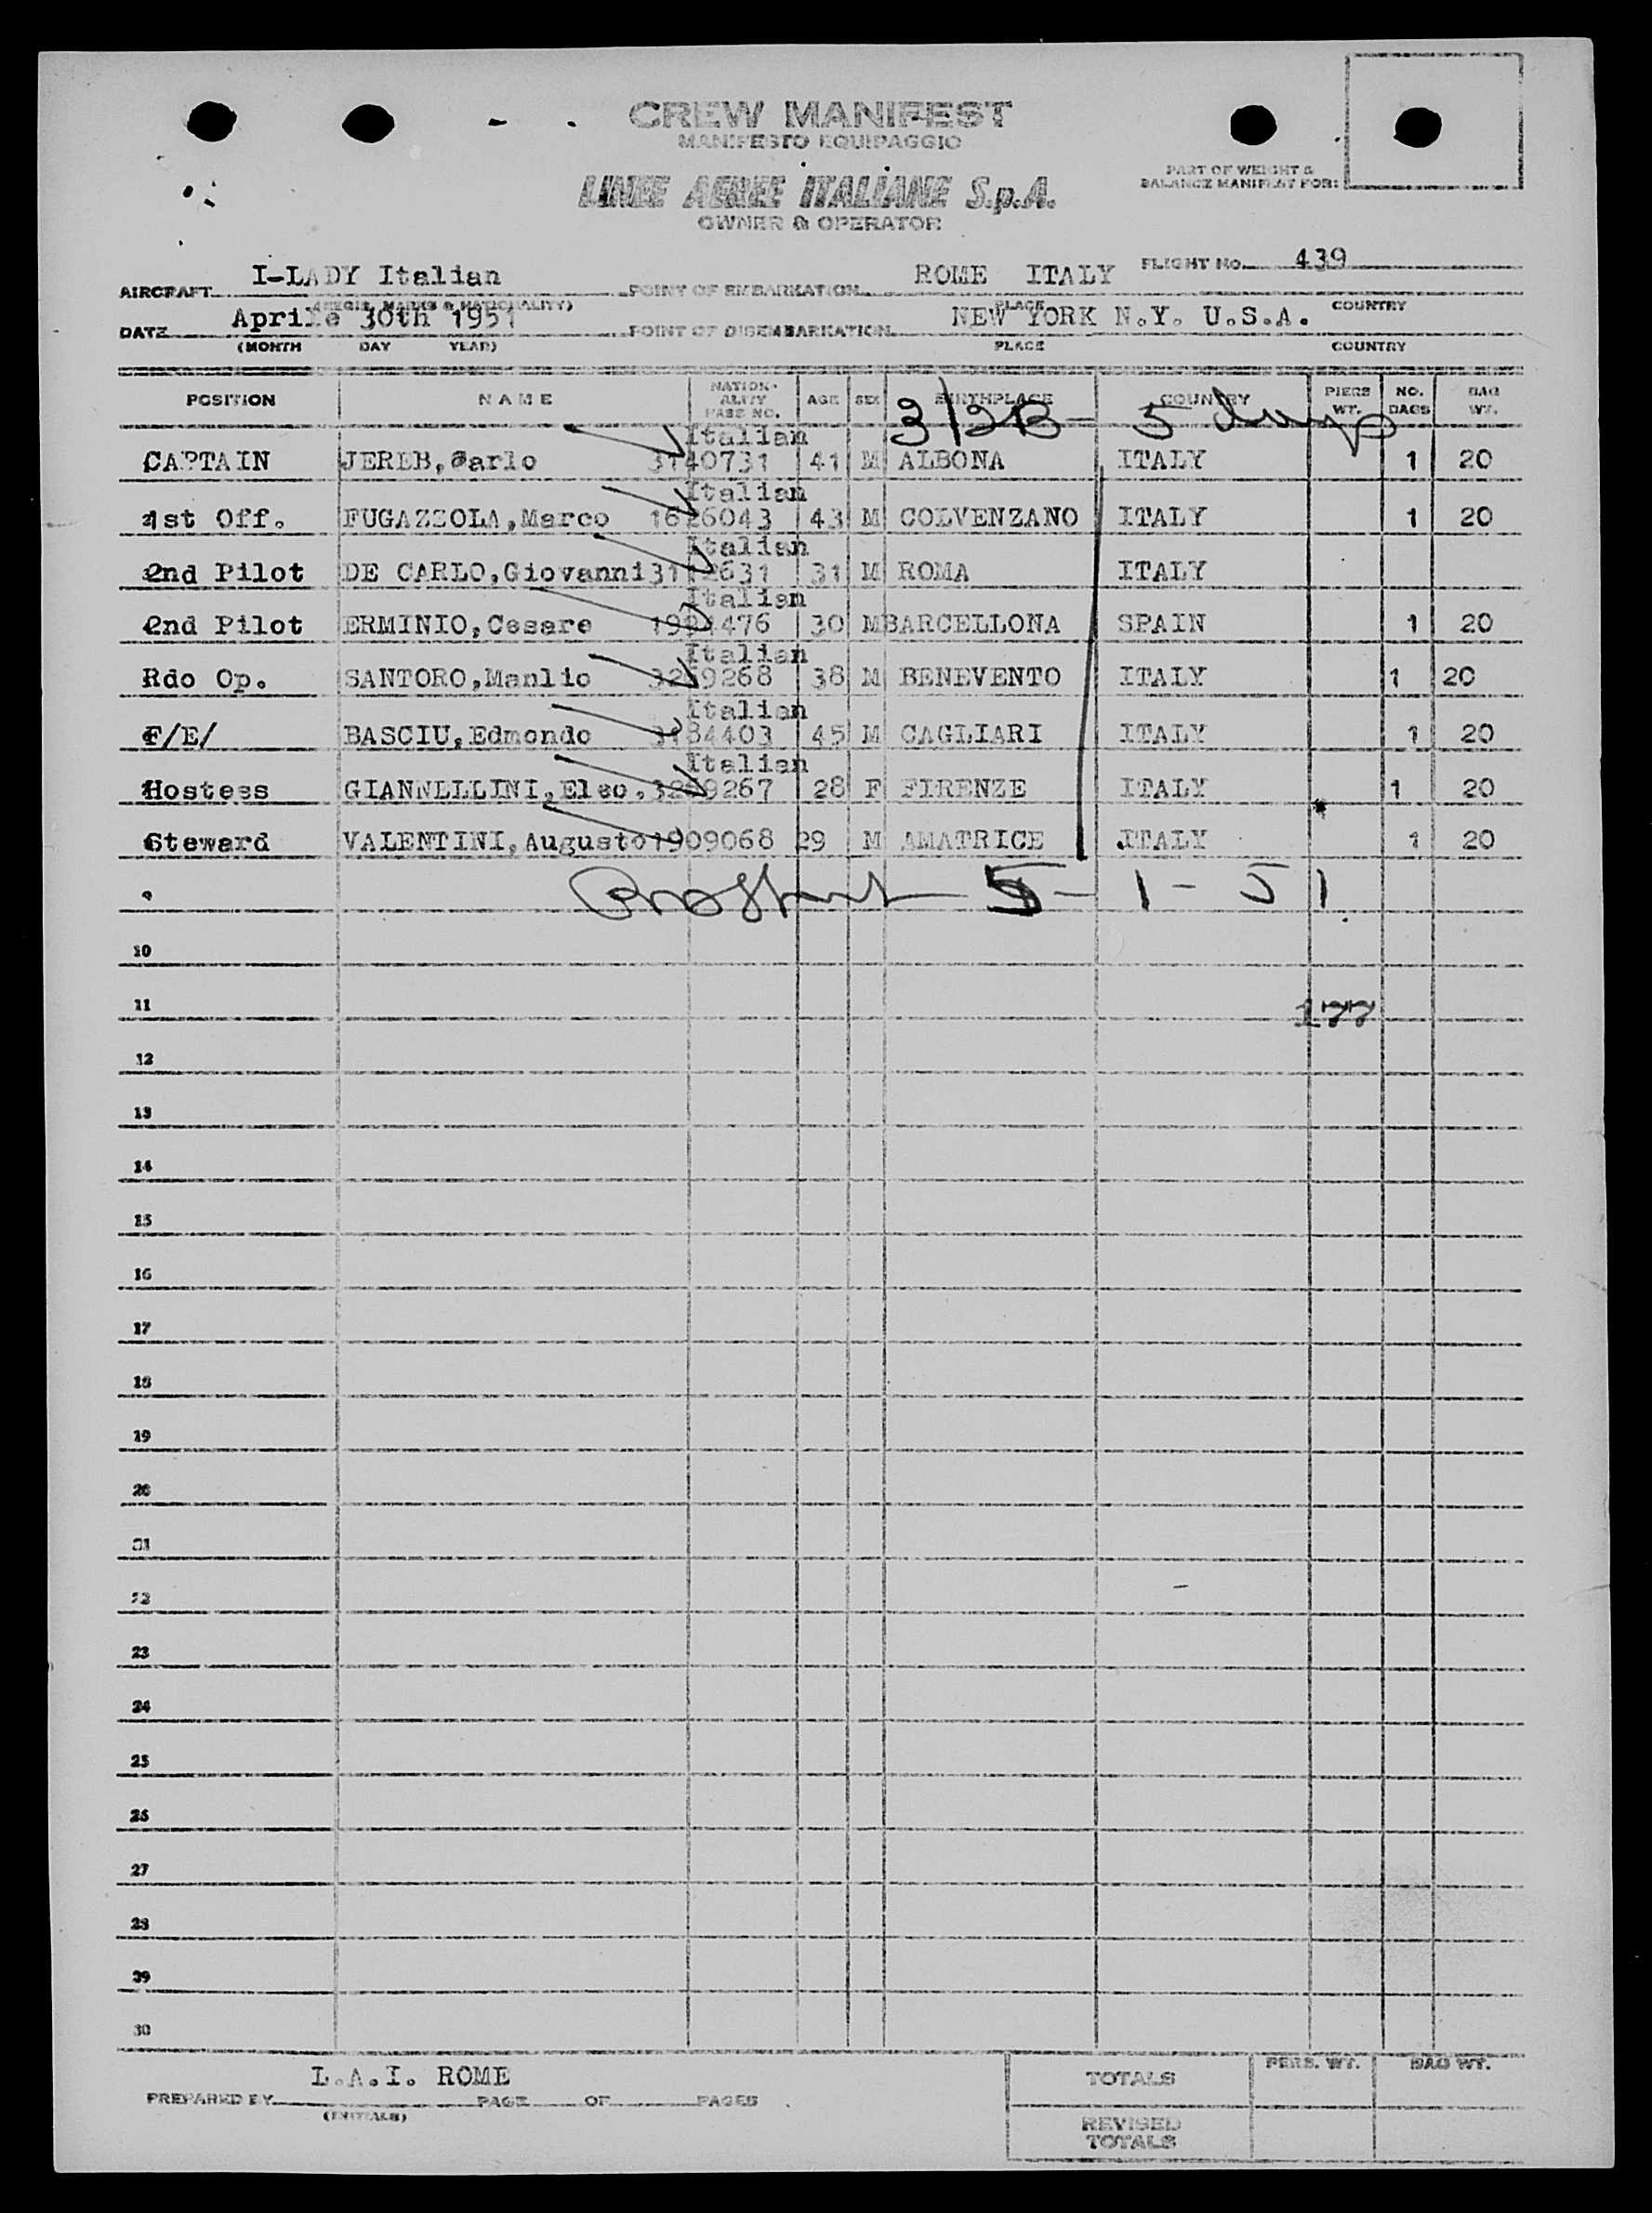 CREW MANIFEST
MANIFESTO EQUIPAGGIO
LINEE AEREE ITALIANE S.p.A.
OWNER & OPERATOR
PART OF WEIGHT &
BALANCE MANIFEST FOR:
AIRCRAFT I-LADY Italian POINT OF EMBARKATION ROME ITALY FLIGHT No. 439
(REGIS. MARKS & NATIONALITY) PLACE COUNTRY
DATE Aprile 30th 1951 POINT OF DISEMBARKATION NEW YORK N.Y. U.S.A.
(MONTH DAY YEAR) PLACE COUNTRY
POSITION NAME NATION-ALITY PASS NO. AGE SEX BIRTHPLACE COUNTRY PIERS WT. NO. BAGS BAG WT.
3/2B- 5
Italian
CAPTAIN JEREB,Carlo 3140731 41 M ALBONA ITALY 1 20
Italian
1st Off. FUGAZZOLA,Marco 1626043 43 M COLVENZANO ITALY 1 20
Italian
2nd Pilot DE CARLO,Giovanni 31 2631 31 M ROMA ITALY
Italian
2nd Pilot ERMINIO,Cesare 476 30 M BARCELLONA SPAIN 1 20
Italian
Rdo Op. SANTORO,Manlio 3259268 38 M BENEVENTO ITALY 1 20
Italian
F/E/ BASCIU,Edmondo 3184403 45 M CAGLIARI ITALY 1 20
Italian
Hostess GIANNELLINI,Eleo. 3259267 28 F FIRENZE ITALY 1 20
Steward VALENTINI,Augusto 1909068 29 M AMATRICE ITALY 1 20
9 5-1-51
10
11 177
12
13
14
15
16
17
18
19
20
21
22
23
24
25
26
27
28
29
30
L.A.I. ROME
PREPARED BY PAGE OF PAGES
(INITIALS)
TOTALS PERS. WT. BAG WT.
REVISED
TOTALS